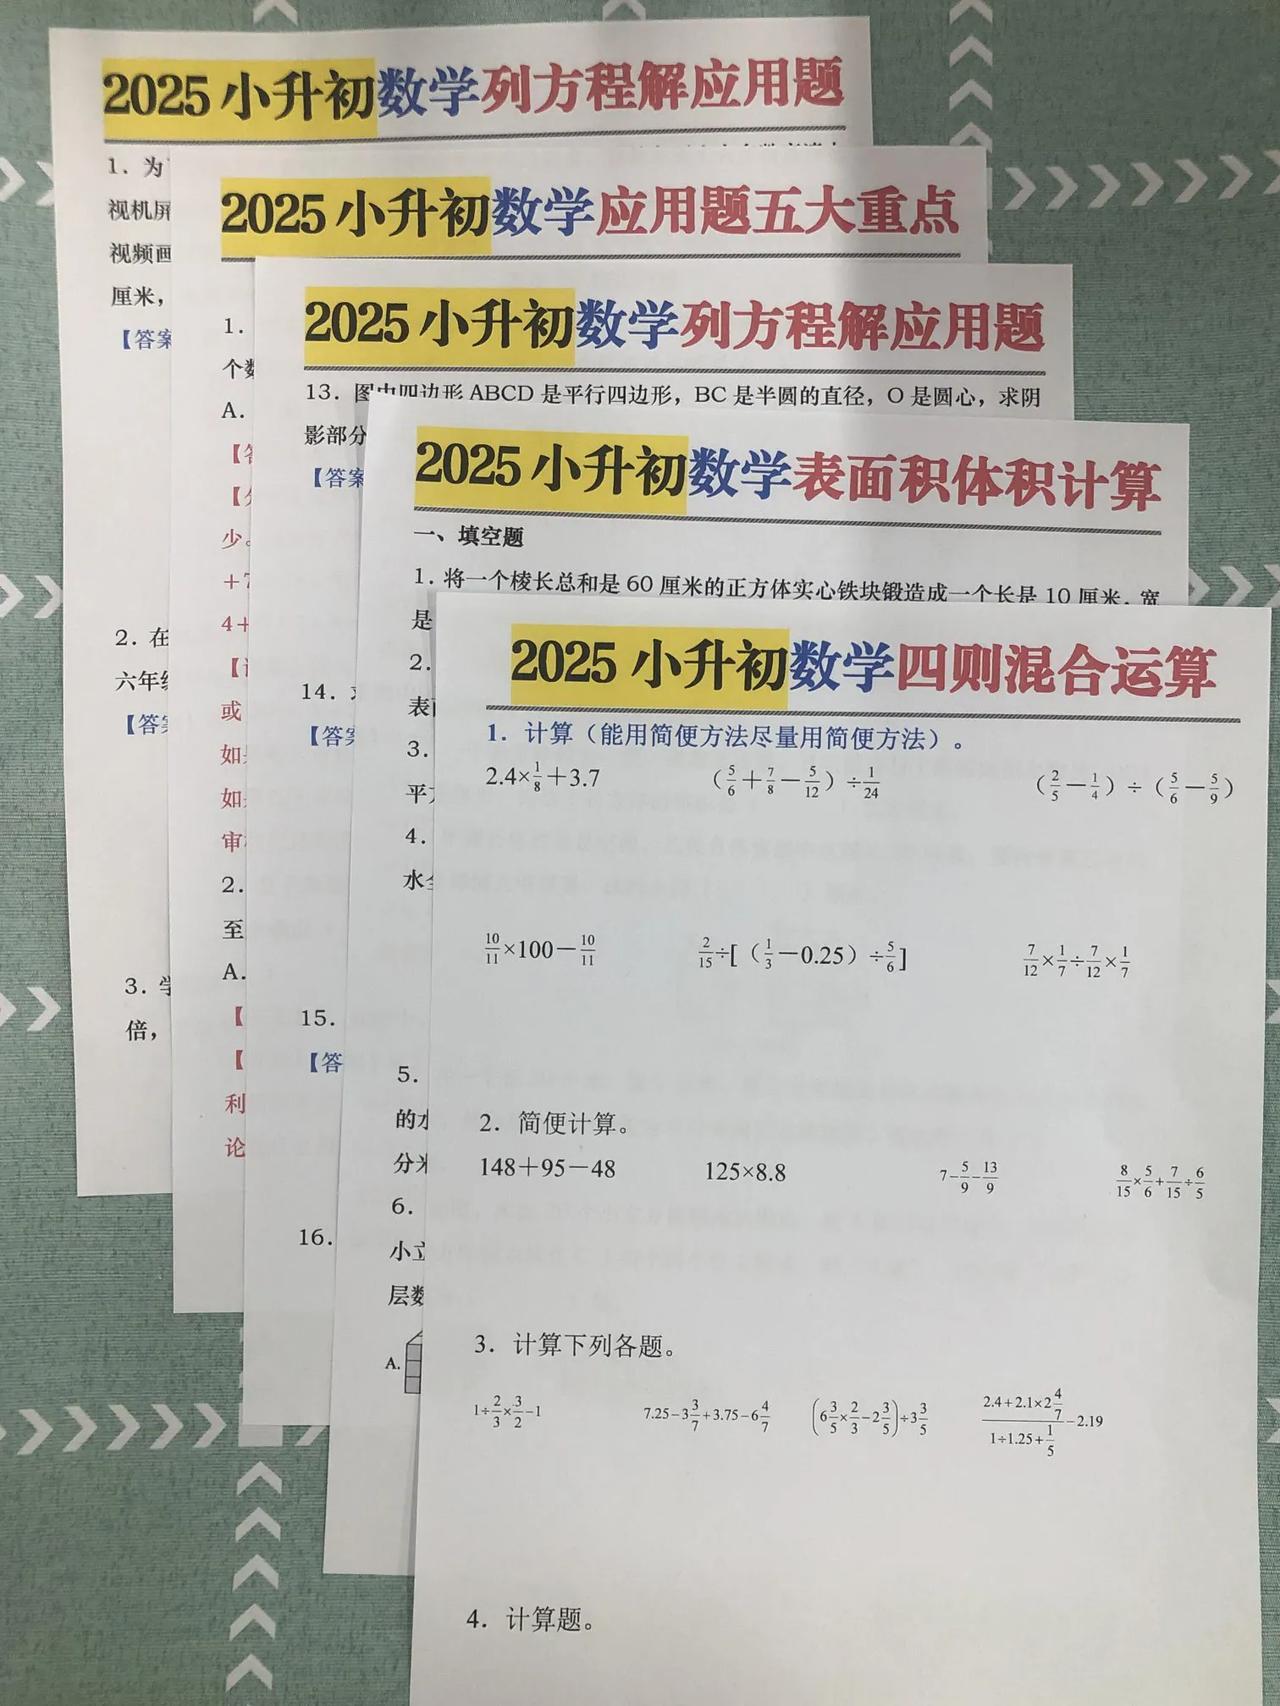 2025小升初数学列方程解应用题
1. 为
视机屏
视频画
厘米，
【答案
2. 在
六年级
【答案
3. 学
倍，
2025小升初数学应用题五大重点
1.
个数
A.
【答
【分
少。
+7
4+
【
或
如
如
审
2.
至
A.
【
【
利
论
2025小升初数学列方程解应用题
13. 图中四边形 ABCD 是平行四边形，BC 是半圆的直径，O 是圆心，求阴
影部分
【答案
14. 求
【答案
15.
【答
16.
2025小升初数学表面积体积计算
一、填空题
1. 将一个棱长总和是 60 厘米的正方体实心铁块锻造成一个长是 10 厘米，宽
是
2.
表面
3.
平方
4.
水全
5.
的水
分米
6.
小立
层数
A.
2025小升初数学四则混合运算
1. 计算（能用简便方法尽量用简便方法）。
2.4×1/8+3.7 （5/6+7/8−5/12）÷1/24 （2/5−1/4）÷（5/6−5/9）
10/11×100−10/11 2/15÷[（1/3−0.25）÷5/6] 7/12×1/7÷7/12×1/7
2. 简便计算。
148+95−48 125×8.8 7−5/9−13/9 8/15×5/6+7/15÷6/5
3. 计算下列各题。
1÷2/3×3/2−1 7.25−3 3/7+3.75−6 4/7 (6 3/5×2/3−2 3/5)÷3 3/5 (2.4+2.1×2 4/7)/(1÷1.25+1/5)−2.19
4. 计算题。